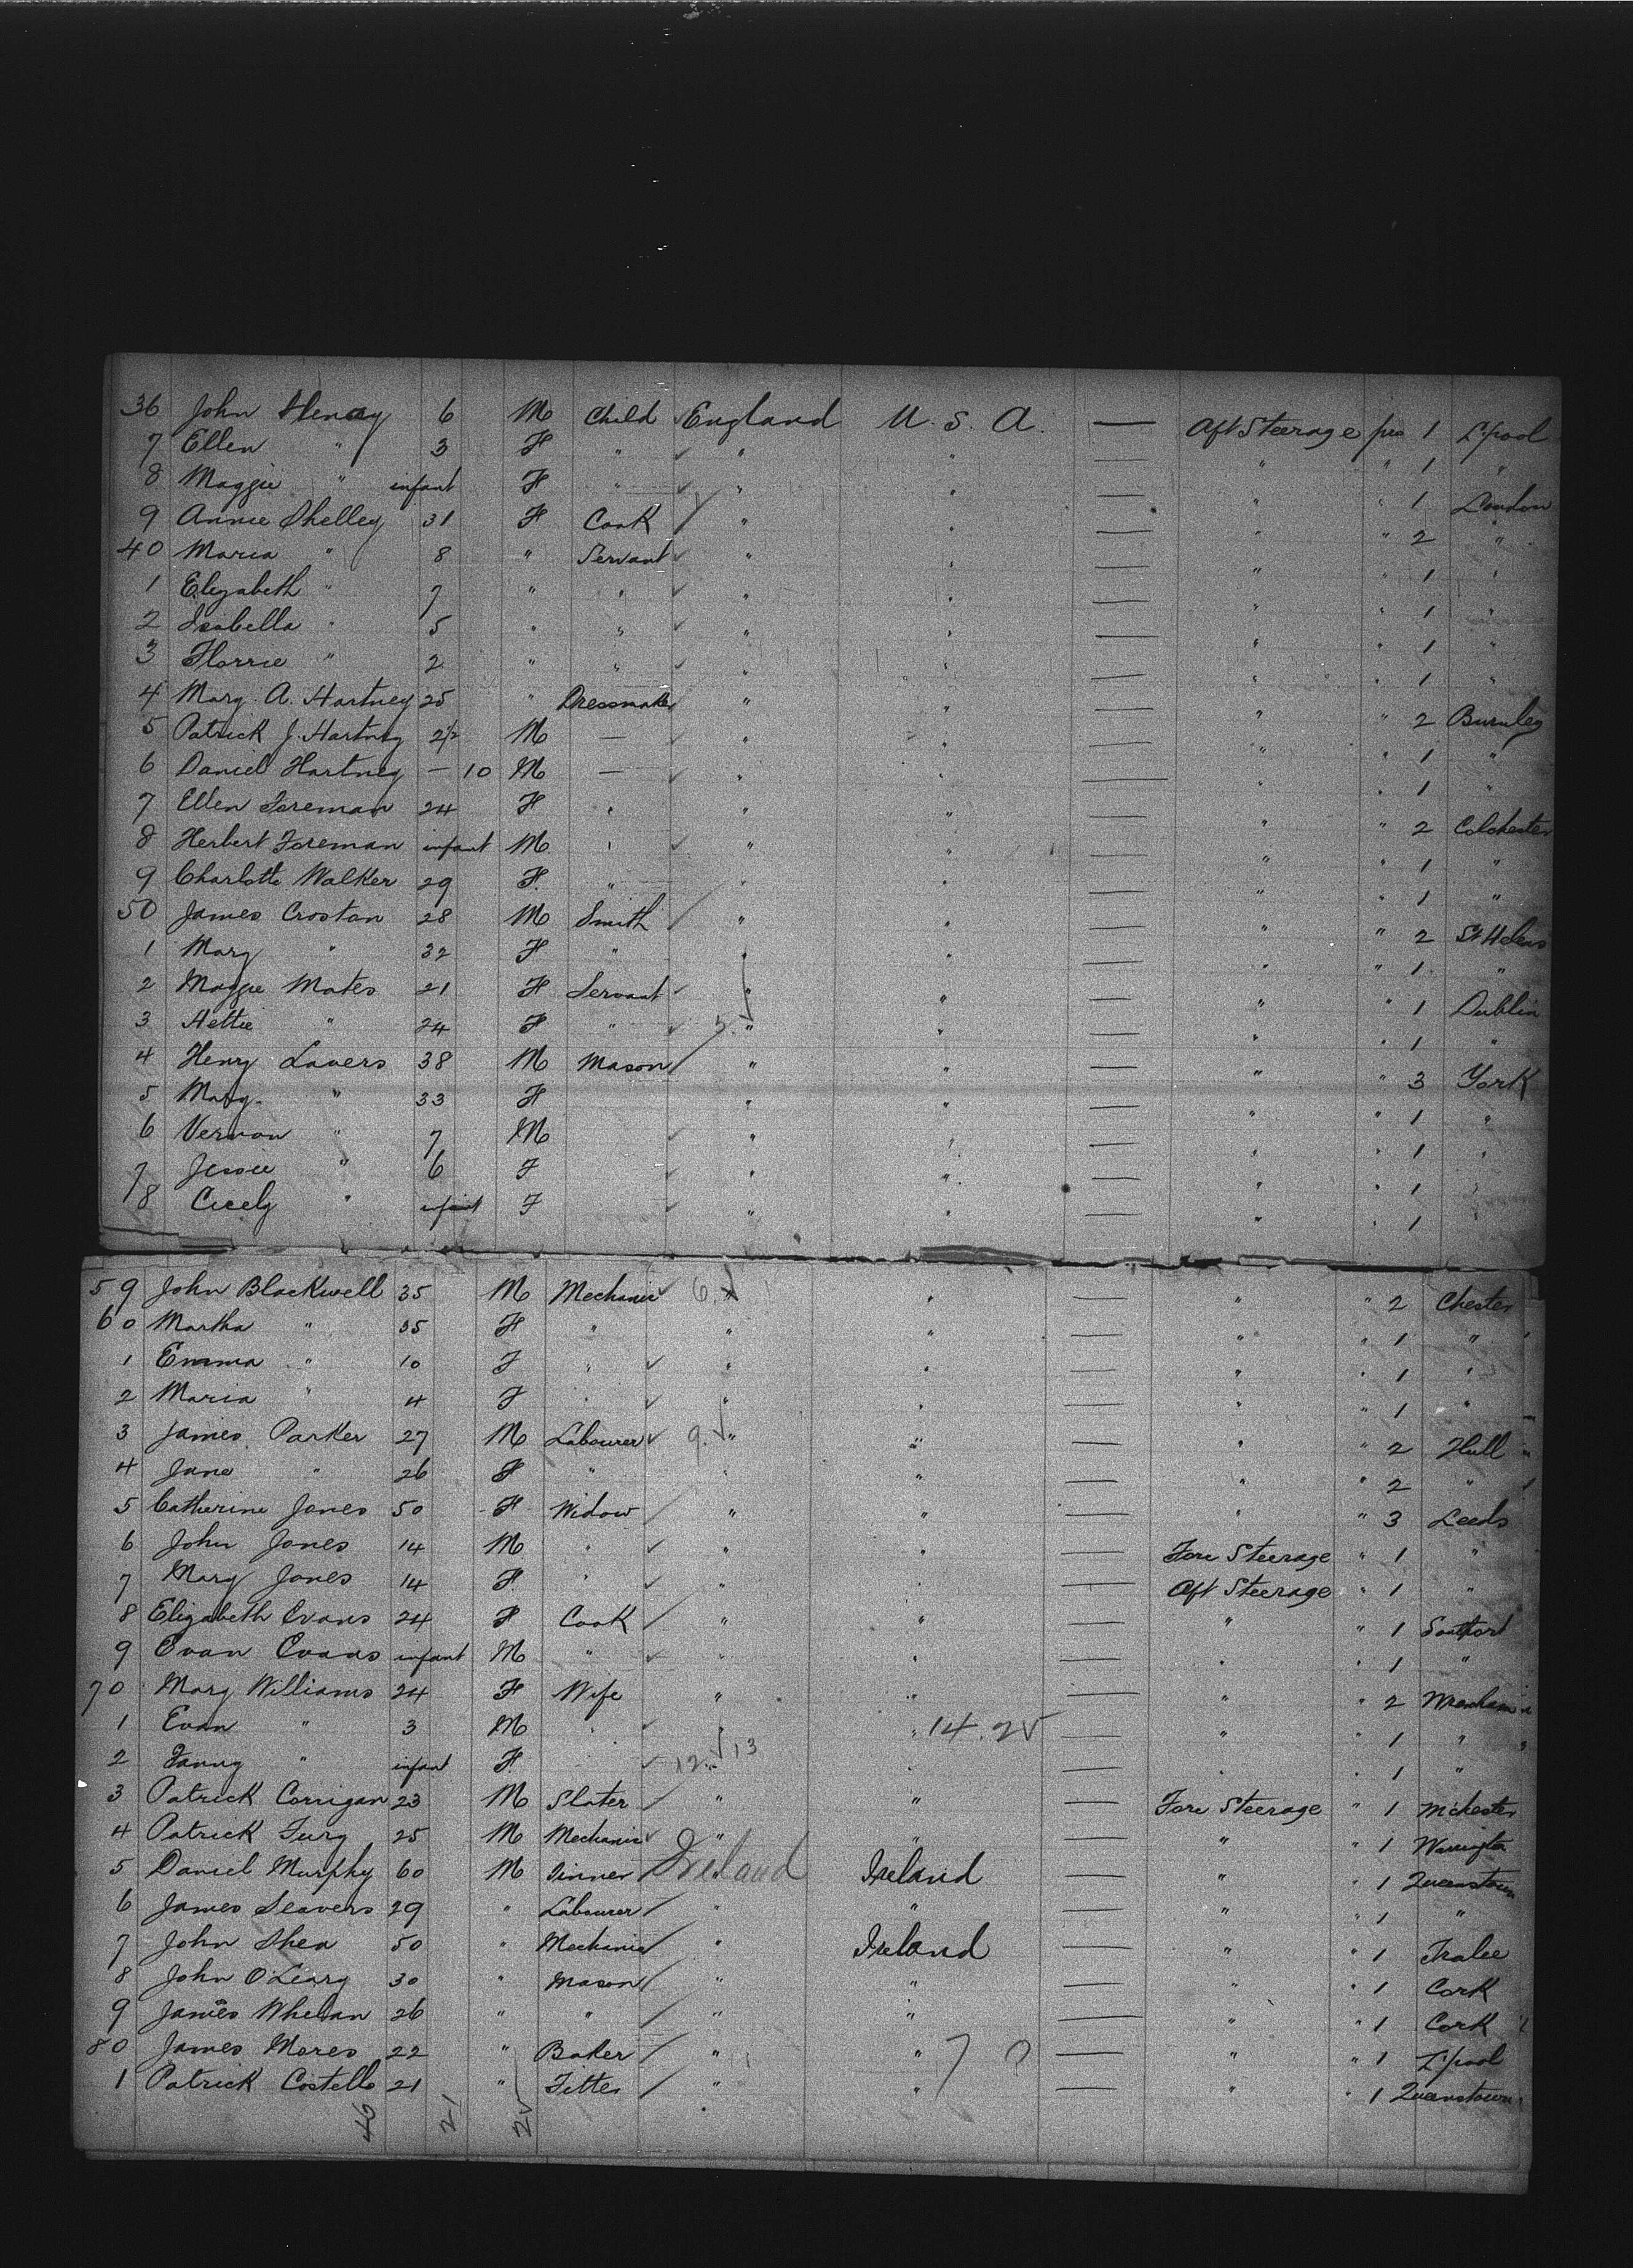 36 John Henry 6 M Child England U. S. A. — Aft Steerage pce 1 L'pool
7 Ellen " 3 F " " " — " " 1 "
8 Maggie " infant F " " " — " " 1 London
9 Annie Shelley 31 F Cook " " — " " 2 "
40 Maria " 8 " Servant " " — " " 1 "
1 Elizabeth " 7 " " " " — " " 1 "
2 Isabella " 5 " " " " — " " 1 "
3 Florrie " 2 " " " " — " " 1 "
4 Mary A. Hartney 25 " Dressmaker " " — " " 2 Burnley
5 Patrick J. Hartney 2½ M — " " — " " 1 "
6 Daniel Hartney — 10 M — " " — " " 1 "
7 Ellen Foreman 24 F " " " — " " 2 Colchester
8 Herbert Foreman infant M " " " — " " 1 "
9 Charlotte Walker 29 F " " " — " " 1 "
50 James Crostan 28 M Smith " " — " " 2 St Helens
1 Mary " 32 F " " " — " " 1 "
2 Maggie Mates 21 F Servant " " — " " 1 Dublin
3 Hettie " 24 F " " " — " " 1 "
4 Henry Lavers 38 M Mason " " — " " 3 York
5 Mary " 33 F " " — " " 1 "
6 Vernon " 7 M " " — " " 1 "
7 Jessie " 6 F " " — " " 1 "
8 Cicely " infant F " " — " " 1 "
59 John Blackwell 35 M Mechanic 6. " " — " " 2 Chester
60 Martha " 35 F " " " — " " 1 "
1 Emma " 10 F " " " — " " 1 "
2 Maria " 4 F " " " — " " 1 "
3 James Parker 27 M Labourer 9. " " — " " 2 Hull
4 Jane " 26 F " " " — " " 2 "
5 Catherine Jones 50 F Widow " " — " " 3 Leeds
6 John Jones 14 M " " " — Fore Steerage " 1 "
7 Mary Jones 14 F " " " — Aft Steerage " 1 "
8 Elizabeth Evans 24 F Cook " " — " " 1 Southport
9 Evan Evans infant M " " " — " " 1 "
70 Mary Williams 24 F Wife " " — " " 2 Wrexham
1 Evan " 3 M " " " 14. 2 — " " 1 "
2 Fanny " infant F 12. 13 " — " " 1 "
3 Patrick Corrigan 23 M Slater " " — Fore Steerage " 1 M'chester
4 Patrick Furg 25 M Mechanic " " — " " 1 Warrington
5 Daniel Murphy 60 M Tinner Ireland Ireland — " " 1 Queenstown
6 James Seavers 29 " Labourer " " — " " 1 "
7 John Shea 50 " Mechanic " Ireland — " " 1 Tralee
8 John O'Leary 30 " Mason " " — " " 1 Cork
9 James Whelan 26 " " " " — " " 1 Cork
80 James Mares 22 " Baker " " — " " 1 L'pool
1 Patrick Costello 21 " Fitter " " — " " 1 Queenstown
46 21 25